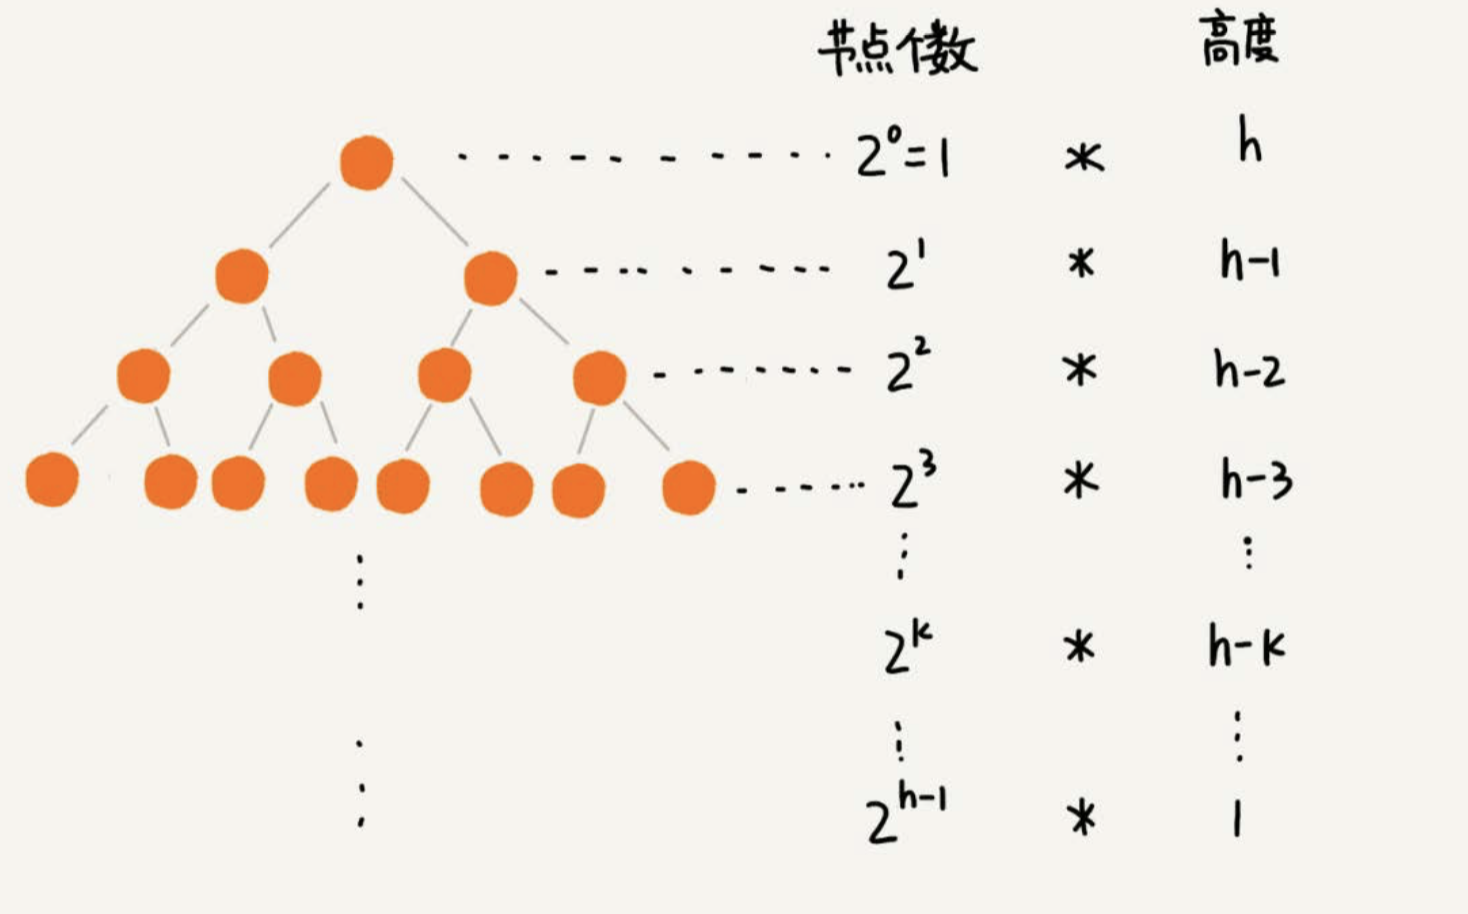 节点个数 高度
2⁰=1 * h
2¹ * h-1
2² * h-2
2³ * h-3
2ᵏ * h-k
2ʰ⁻¹ * 1